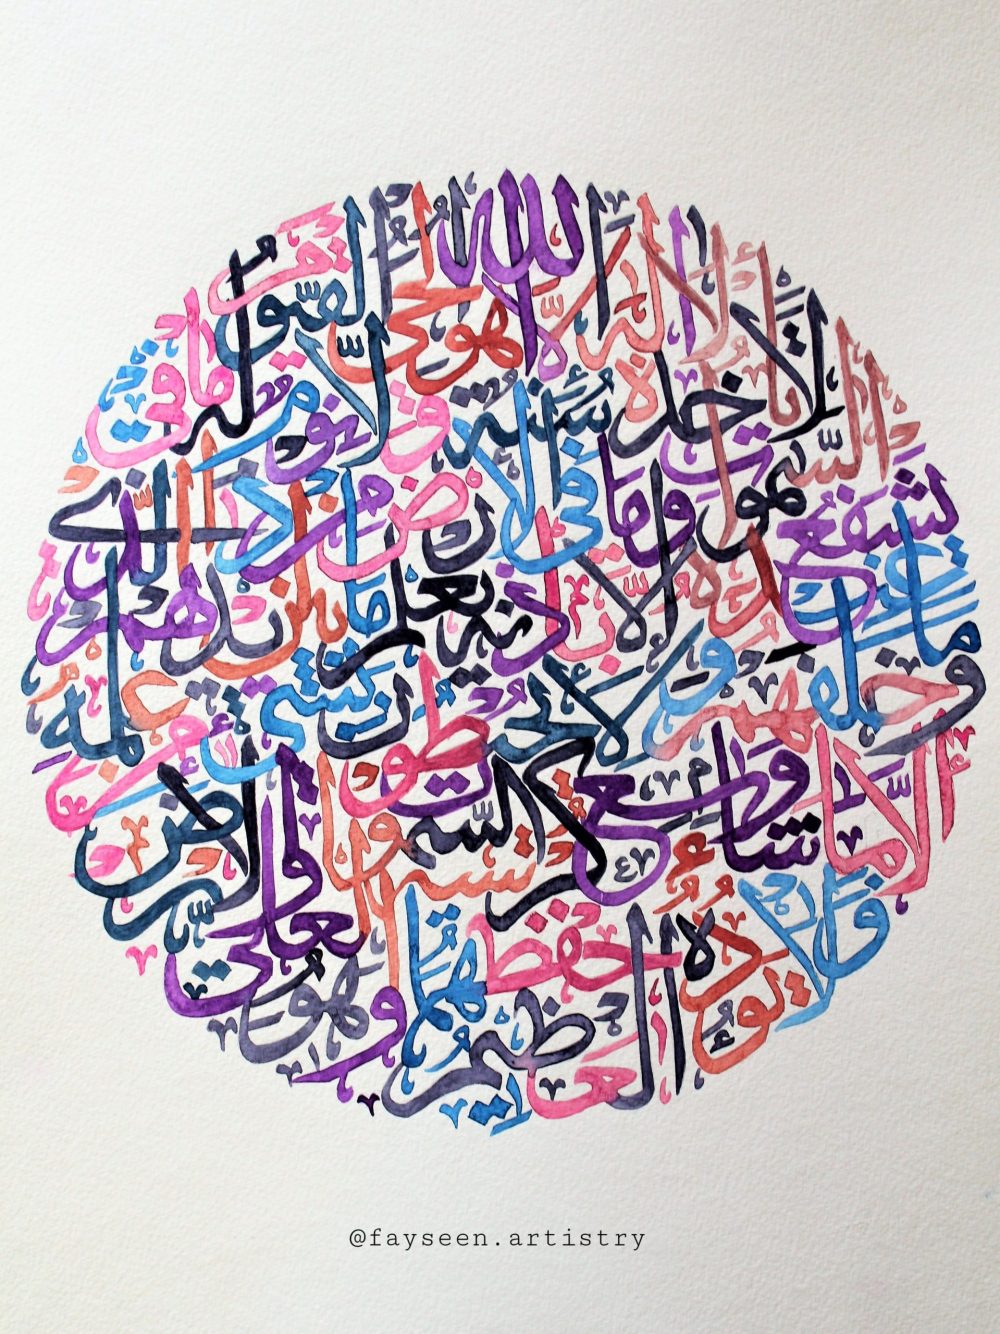 الله لا إله إلا هو الحي القيوم
لا تأخذه سنة ولا نوم له ما في
السموات وما في الأرض من ذا الذي
يشفع عنده إلا بإذنه يعلم ما بين أيديهم
وما خلفهم ولا يحيطون بشيء من علمه
إلا بما شاء وسع كرسيه السموات والأرض
ولا يؤده حفظهما وهو العلي
العظيم
@fayseen.artistry